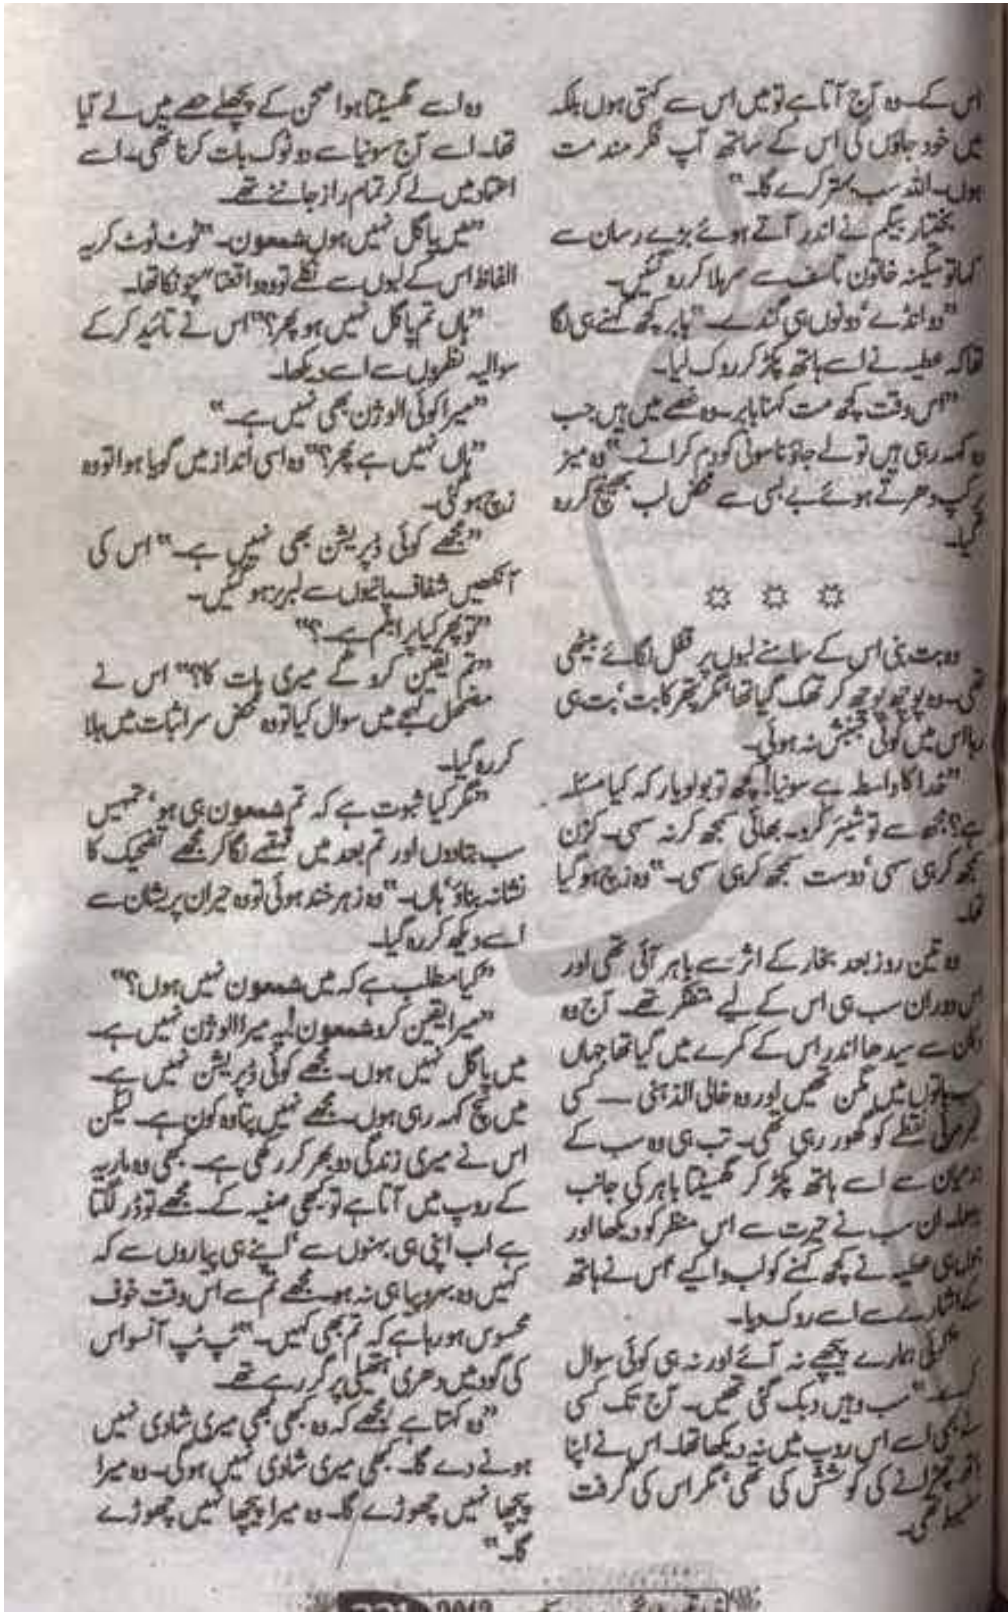 اس کے۔ وہ آج آتا ہے تو میں اس سے کہتی ہوں بلکہ
میں خود جاؤں گی اس کے ساتھ آپ فکر مند مت
ہوں۔ اللہ سب بہتر کرے گا۔"
بختیار بیگم نے اندر آتے ہوئے بڑے رسان سے
کہا تو سکینہ خاتون تاسف سے سر ہلا کر رہ گئیں۔
"دو انڈے' دونوں ہی گندے۔" بابر کچھ کہنے ہی لگا
تھا کہ عطیہ نے اسے ہاتھ پکڑ کر روک لیا۔
"اس وقت کچھ مت کہنا بابر۔ وہ غصے میں ہیں جب
وہ کہہ رہی ہیں تو لے جاؤ نا سونی کو دم کرانے۔" وہ میز
پر کپ دھرتے ہوئے بے بسی سے محض لب بھینچ کر رہ
گیا۔
وہ بت بنی اس کے سامنے لبوں پر قفل لگائے بیٹھی
تھی۔ وہ پوچھ پوچھ کر تھک گیا تھا' مگر پتھر کا بت' بت ہی
رہا اس میں کوئی جنبش نہ ہوئی۔
"خدا کا واسطہ ہے سونیا! کچھ تو بولو یار کہ کیا مسئلہ
ہے؟ مجھ سے تو شیئر کرو۔ بھائی سمجھ کر نہ سہی۔ کزن
سمجھ کر ہی سہی' دوست سمجھ کر ہی سہی۔" وہ زچ ہو گیا
تھا۔
وہ تین روز بعد بخار کے اثر سے باہر آئی تھی اور
اس دوران سب ہی اس کے لیے متفکر تھے۔ آج وہ
سے سیدھا اندر اس کے کمرے میں گیا تھا جہاں
سب باتوں میں مگن تھیں اور وہ خالی الذہنی — کسی
غیر مرئی نقطے کو گھور رہی تھی۔ تب ہی وہ سب کے
درمیان سے اسے ہاتھ پکڑ کر گھسیٹتا باہر کی جانب
بڑھا۔ ان سب نے حیرت سے اس منظر کو دیکھا اور
جوں ہی عطیہ نے کچھ کہنے کو لب وا کیے' اس نے ہاتھ
کے اشارے سے اسے روک دیا۔
"کوئی ہمارے پیچھے نہ آئے اور نہ ہی کوئی سوال
کرے۔" سب وہیں دبک گئی تھیں۔ آج تک کسی
نے بھی اسے اس روپ میں نہ دیکھا تھا۔ اس نے اپنا
ہاتھ چھڑانے کی کوشش کی تھی' مگر اس کی گرفت
مضبوط تھی۔
وہ اسے گھسیٹتا ہوا صحن کے پچھلے حصے میں لے آیا
تھا۔ اسے آج سونیا سے دو ٹوک بات کرنا تھی۔ اسے
اعتماد میں لے کر تمام راز جاننے تھے۔
"میں پاگل نہیں ہوں شمعون۔" ٹوٹ ٹوٹ کر یہ
الفاظ اس کے لبوں سے نکلے تو وہ دفعتا" چونکا تھا۔
"ہاں تم پاگل نہیں ہو پھر؟" اس نے تائید کر کے
سوالیہ نظروں سے اسے دیکھا۔
"میرا کوئی الوژن بھی نہیں ہے۔"
"ہاں نہیں ہے پھر؟" وہ اسی انداز میں گویا ہوا تو وہ
زچ ہو گئی۔
"مجھے کوئی ڈپریشن بھی نہیں ہے۔" اس کی
آنکھیں شفاف پانیوں سے لبریز ہو گئیں۔
"تو پھر کیا پرابلم ہے۔؟"
"تم یقین کرو گے میری بات کا؟" اس نے
مضمحل لہجے میں سوال کیا تو وہ محض سر اثبات میں ہلا
کر رہ گیا۔
"مگر کیا ثبوت ہے کہ تم شمعون ہی ہو' تمہیں
سب بتا دوں اور تم بعد میں قہقہے لگا کر مجھے تضحیک کا
نشانہ بناؤ' ہاں۔" وہ زہر خند ہوئی تو وہ حیران پریشان سے
اسے دیکھ کر رہ گیا۔
"کیا مطلب ہے کہ میں شمعون نہیں ہوں؟"
"میرا یقین کرو شمعون! یہ میرا الوژن نہیں ہے۔
میں پاگل نہیں ہوں۔ مجھے کوئی ڈپریشن نہیں ہے۔
میں سچ کہہ رہی ہوں۔ مجھے نہیں پتا وہ کون ہے۔ لیکن
اس نے میری زندگی دوبھر کر رکھی ہے۔ کبھی وہ ماریہ
کے روپ میں آتا ہے تو کبھی صفیہ کے۔ مجھے تو ڈر لگتا
ہے اب اپنی ہی بہنوں سے' اپنے ہی پیاروں سے کہ
کہیں وہ بہروپیا ہی نہ ہو۔ مجھے تم سے اس وقت خوف
محسوس ہو رہا ہے کہ تم بھی کہیں۔" ٹپ ٹپ آنسو اس
کی گود میں دھری ہتھیلی پر گر رہے تھے۔
"وہ کہتا ہے مجھے کہ وہ کبھی بھی میری شادی نہیں
ہونے دے گا۔ کبھی میری شادی نہیں ہوگی۔ وہ میرا
پیچھا نہیں چھوڑے گا۔ وہ میرا پیچھا نہیں چھوڑے
گا۔"